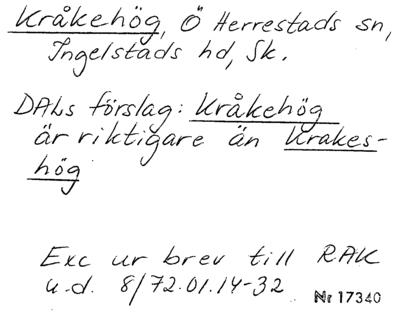 Kråkehög, Ö Herrestads sn,
Ingelstads hd, Sk.
DALs förslag: Kråkehög
är riktigare än Krakes-
hög
Exc ur brev till RAK
u.d. 8/72.01.14-32 Nr 17340